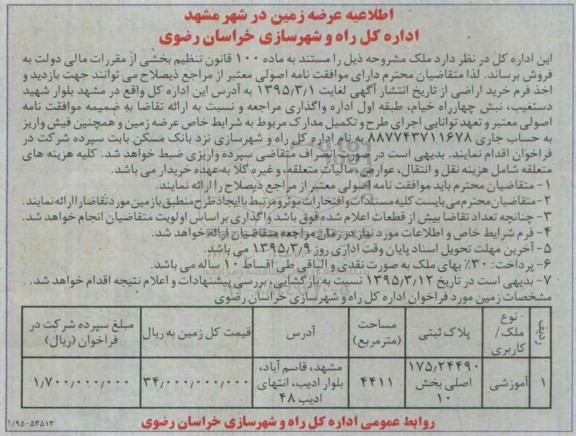 اطلاعیه عرضه زمین در شهر مشهد
اداره کل راه و شهرسازی خراسان رضوی
این اداره کل در نظر دارد ملک مشروحه ذیل را مستند به ماده ۱۰۰ قانون تنظیم بخشی از مقررات مالی دولت به
فروش برساند. لذا متقاضیان محترم دارای موافقت نامه اصولی معتبر از مراجع ذیصلاح می توانند جهت بازدید و
اخذ فرم خرید اراضی از تاریخ انتشار آگهی لغایت ۱۳۹۵/۳/۱ به آدرس این اداره کل واقع در مشهد بلوار شهید
دستغیب، نبش چهارراه خیام، طبقه اول اداره واگذاری مراجعه و نسبت به ارائه تقاضا به ضمیمه موافقت نامه
اصولی معتبر و تعهد توانایی اجرای طرح و تکمیل مدارک مربوط به شرایط خاص عرضه زمین و همچنین فیش واریز
به حساب جاری ۸۸۷۷۴۳۷۱۱۶۷۸ به نام اداره کل راه و شهرسازی نزد بانک مسکن بابت سپرده شرکت در
فراخوان اقدام نمایند. بدیهی است در صورت انصراف متقاضی سپرده واریزی ضبط خواهد شد. کلیه هزینه های
متعلقه شامل هزینه نقل و انتقال، عوارض، مالیات متعلقه، و غیره کلا به عهده خریدار می باشد.
۱- متقاضیان محترم باید موافقت نامه اصولی معتبر از مراجع ذیصلاح را ارائه نمایند.
۲- متقاضیان محترم می بایست کلیه مستندات و افتخارات موثر و مرتبط با ایجاد طرح منطبق با زمین مورد تقاضا را ارائه نمایند.
۳- چنانچه تعداد تقاضا بیش از قطعات اعلام شده فوق باشد واگذاری بر اساس اولویت متقاضیان انجام خواهد شد.
۴- فرم شرایط خاص و اطلاعات مورد نیاز در زمان مراجعه متقاضیان ارائه خواهد شد.
۵- آخرین مهلت تحویل اسناد پایان وقت اداری روز ۱۳۹۵/۳/۹ می باشد.
۶- پرداخت: ۳۰٪ بهای ملک به صورت نقدی و الباقی طی اقساط ۱۰ ساله می باشد.
۷- بدیهی است در تاریخ ۱۳۹۵/۳/۱۲ نسبت به بازگشایی، بررسی پیشنهادات و اعلام نتیجه اقدام خواهد شد.
مشخصات زمین مورد فراخوان اداره کل راه و شهرسازی خراسان رضوی
ردیف | نوع ملک/ کاربری | پلاک ثبتی | مساحت (مترمربع) | آدرس | قیمت کل زمین به ریال | مبلغ سپرده شرکت در فراخوان (ریال)
۱ | آموزشی | ۱۷۵/۲۴۴۹۰ اصلی بخش ۱۰ | ۴۴۱۱ | مشهد، قاسم آباد، بلوار ادیب، انتهای ادیب ۴۸ | ۳۴/۰۰۰/۰۰۰/۰۰۰ | ۱/۷۰۰/۰۰۰/۰۰۰
روابط عمومی اداره کل راه و شهرسازی خراسان رضوی
۱/۹۵۰۵۳۵۱۲